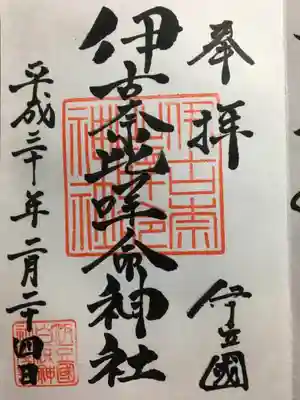 奉拝
伊豆國
伊古奈比咩命神社
平成三十年二月二十四日